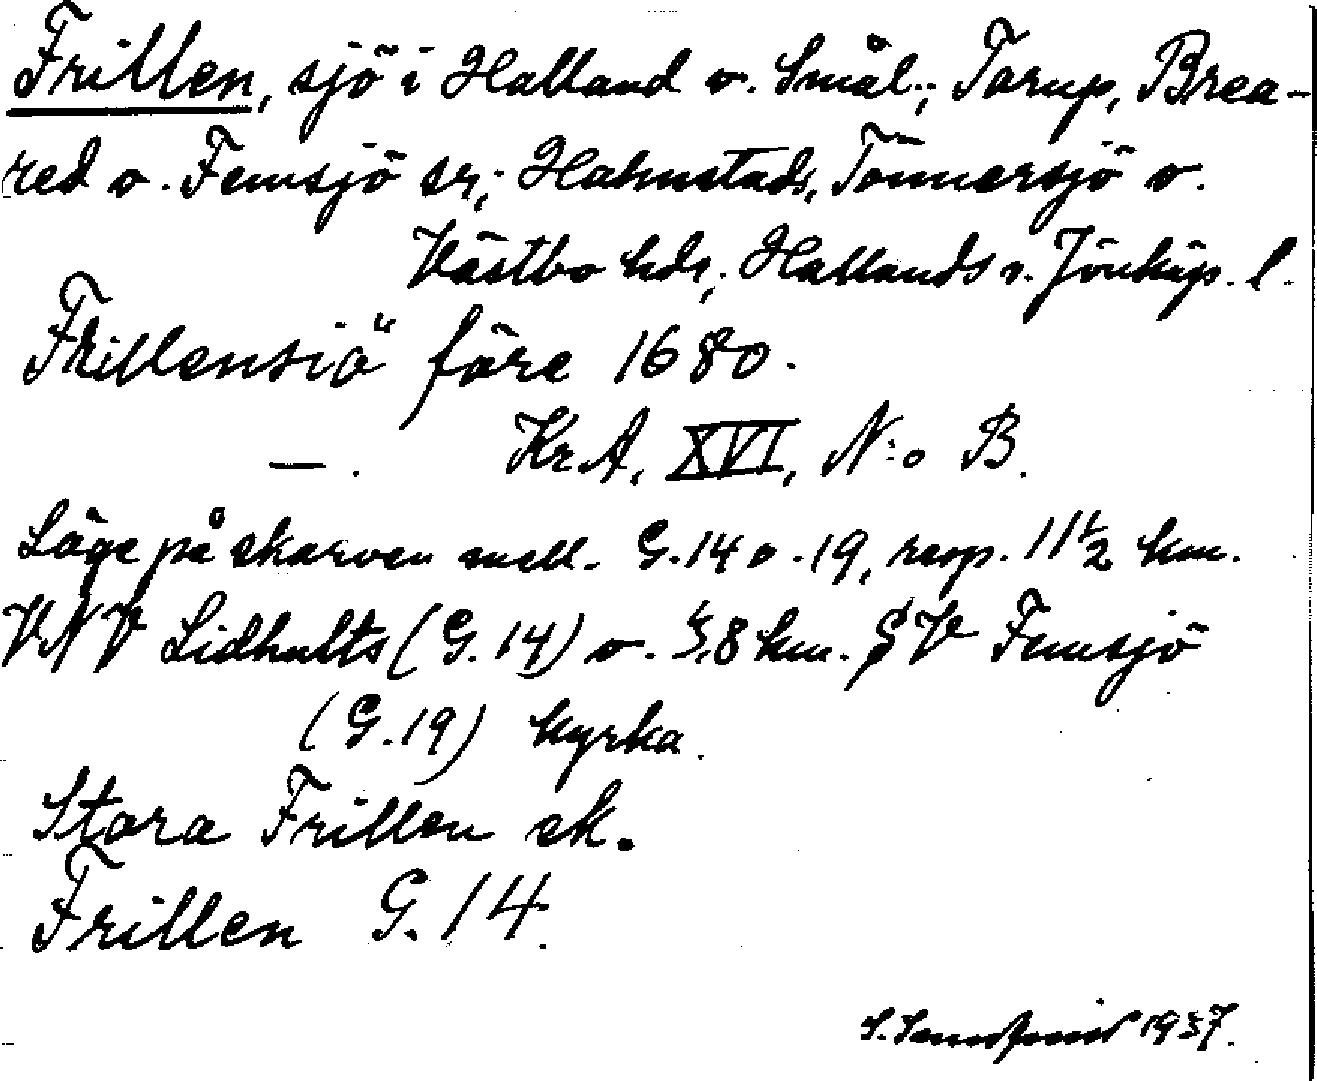 Frillen, sjö i Halland o. Smål.; Torup, Brea-
red o. Femsjö sr; Halmstads, Tönnersjö o.
Västbo hdr; Hallands o. Jönköp. l.
Frillensiö före 1680.
— . Kr.A, XVI, N:o B.
Läge på skarven mell. G.14 o. 19, resp. 11½ km.
VNV Lidhults (G.14) o. 5,8 km. SV Femsjö
(G.19) kyrka.
Stora Frillen ek.
Frillen G.14.
1937.